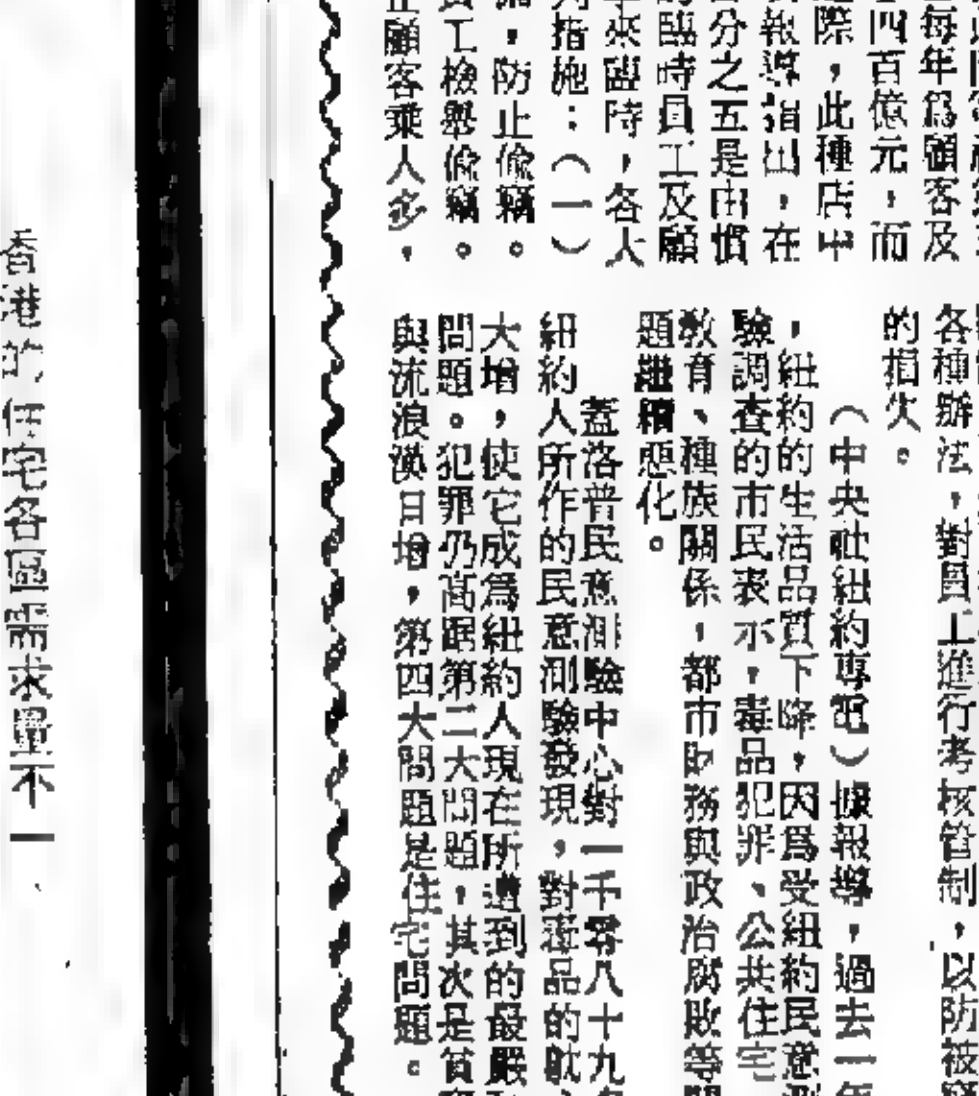 每年爲顧客及
四百億元，而
際，此種店中
報導指出，在
分之五是由慣
臨時員工及顧
來臨時，各大
指施：（一）
，防止偸竊。
工檢舉偸竊。
顧客乘人多，
各種辦法，對員工進行考核管制，以防被竊
的損失。
（中央社紐約專電）據報導，過去一年
，紐約的生活品質下降，因爲受紐約民意測
驗調查的市民表示，毒品犯罪、公共住宅
敎育、種族關係，都市財務與政治腐敗等問
題繼續惡化。
蓋洛普民意測驗中心對一千零八十九名
紐約人所作的民意測驗發現，對毒品的耽
大增，使它成爲紐約人現在所遭到的最嚴
問題。犯罪仍高踞第二大問題，其次是貧
與流浪漢日增，第四大問題是住宅問題。
香港的住宅各區需求量不一